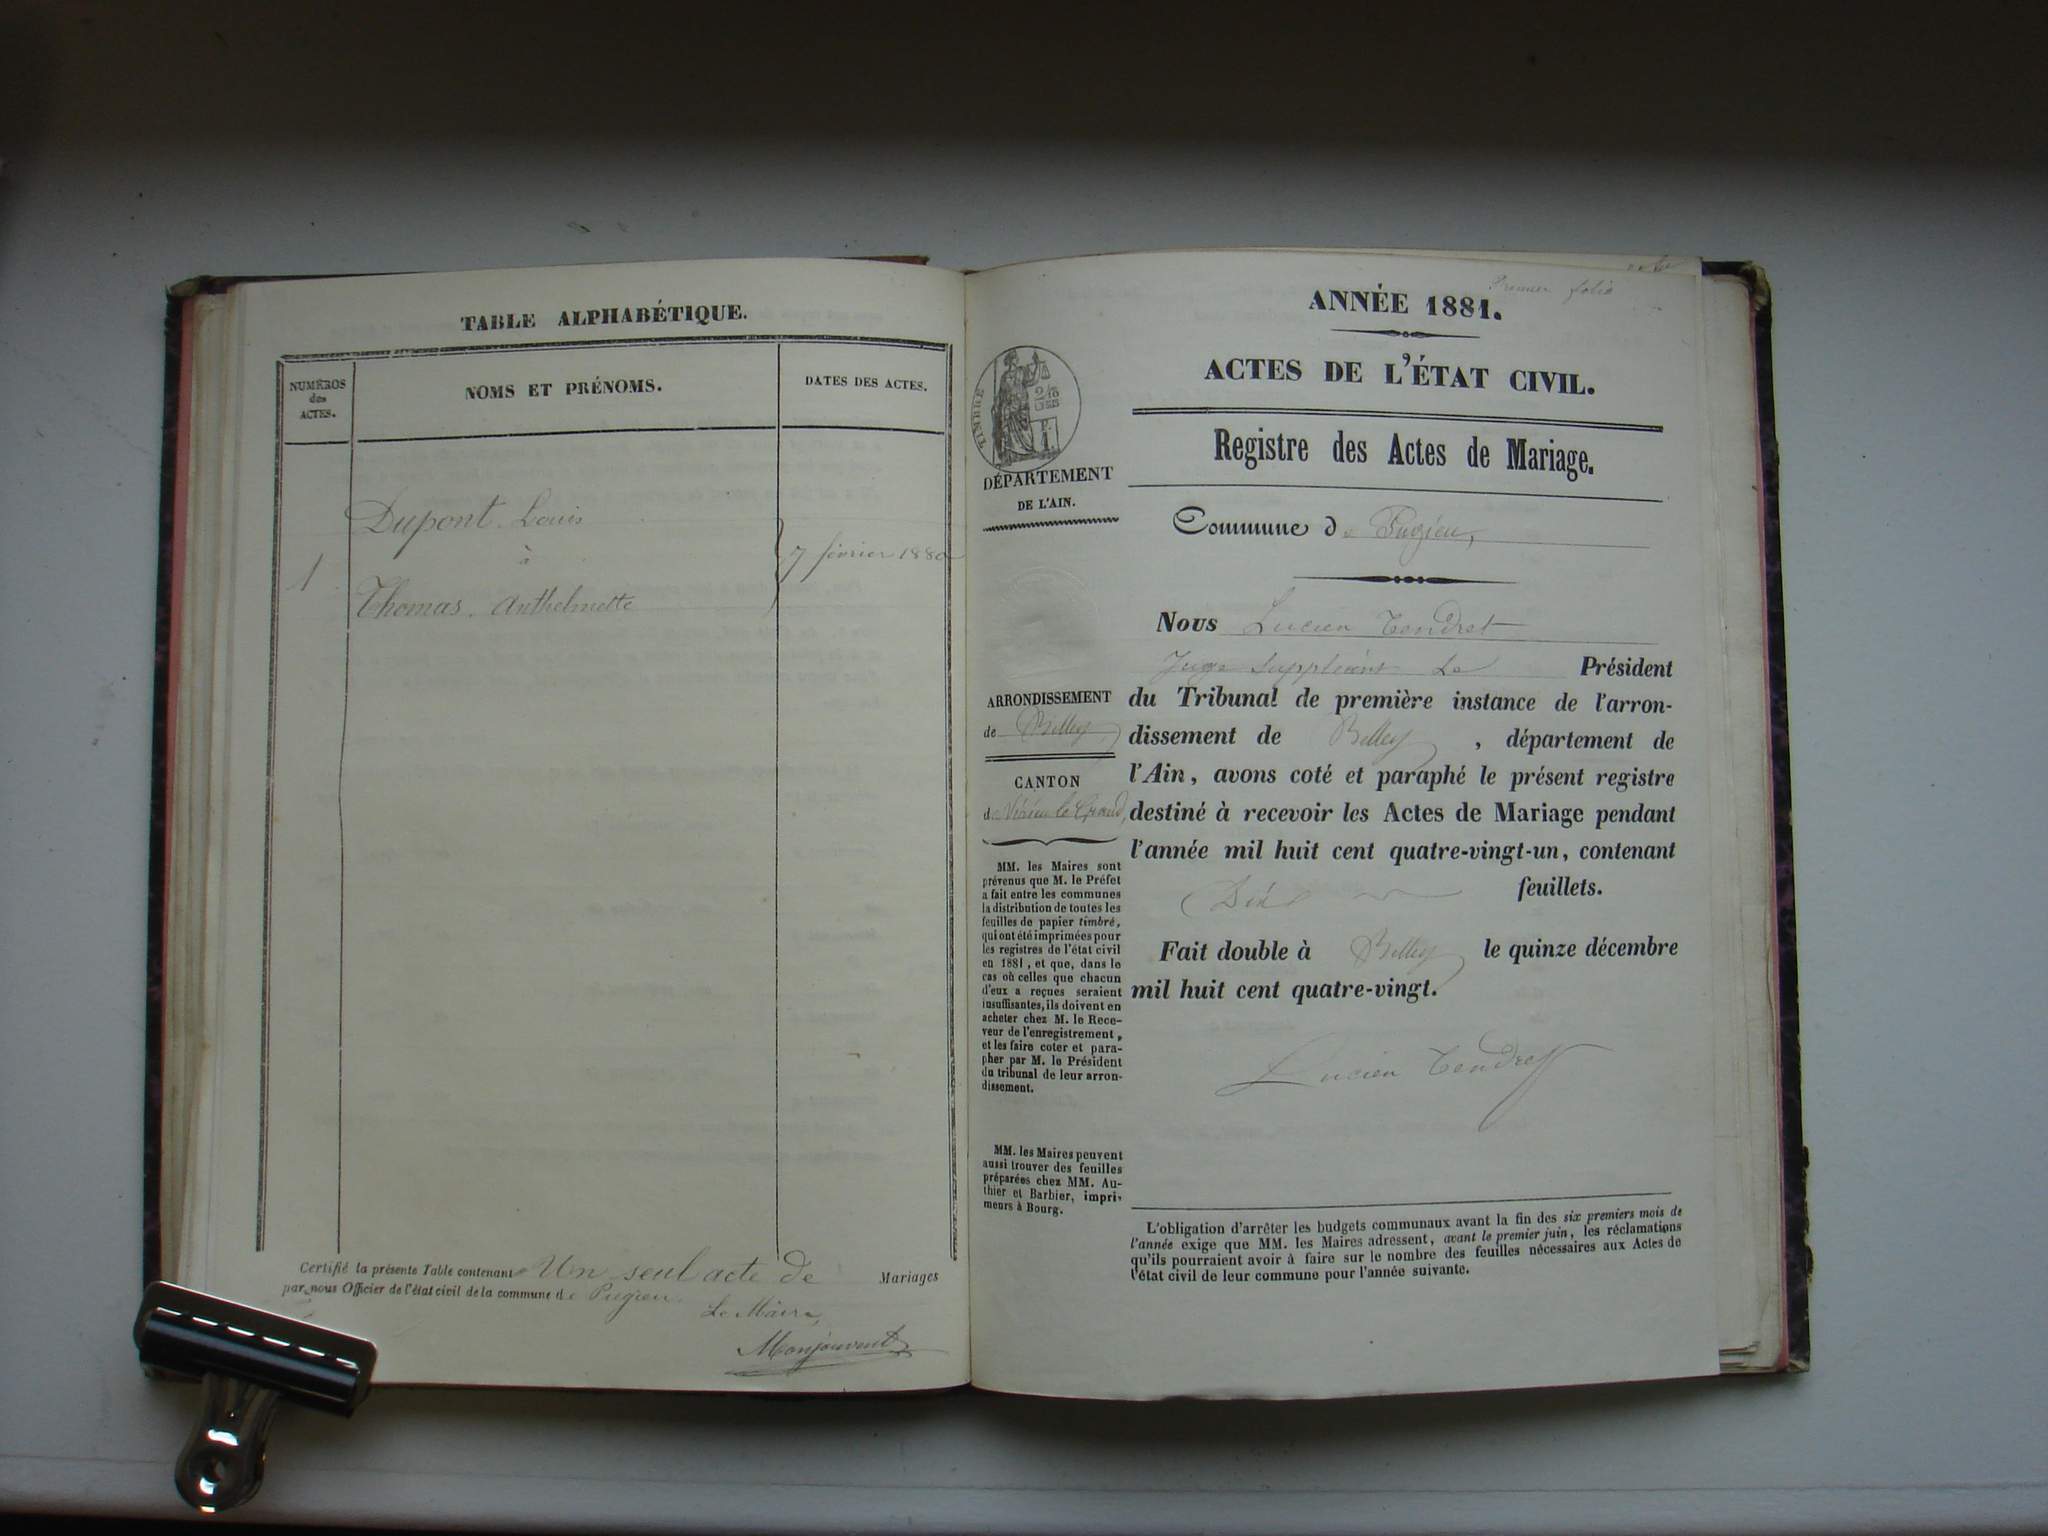 TABLE ALPHABÉTIQUE.
NUMÉROS
des
ACTES.
NOMS ET PRÉNOMS.
DATES DES ACTES.
Dupont Louis
à
1
7 février 1880
Thomas. Anthelmette
Certifié la présente Table contenant Un seul acte de Mariages
par nous Officier de l'état civil de la commune de Pugieu.
Le Maire,
Monjouvent
Premier folio
ANNÉE 1881.
ACTES DE L'ÉTAT CIVIL.
Registre des Actes de Mariage.
TIMBRE
DÉPARTEMENT
DE L'AIN.
Commune de Pugieu,
Nous Lucien Tendret
Juge suppléant Le Président
du Tribunal de première instance de l'arron-
dissement de Belley, département de
l'Ain, avons coté et paraphé le présent registre
destiné à recevoir les Actes de Mariage pendant
l'année mil huit cent quatre-vingt-un, contenant
Dix feuillets.
Fait double à Belley le quinze décembre
mil huit cent quatre-vingt.
Lucien Tendret
ARRONDISSEMENT
de Belley
CANTON
de Virieu le Grand,
MM. les Maires sont
prévenus que M. le Préfet
a fait entre les communes
la distribution de toutes les
feuilles de papier timbré,
qui ont été imprimées pour
les registres de l'état civil
en 1881, et que, dans le
cas où celles que chacun
d'eux a reçues seraient
insuffisantes, ils doivent en
acheter chez M. le Rece-
veur de l'enregistrement,
et les faire coter et para-
pher par M. le Président
du tribunal de leur arron-
dissement.
MM. les Maires peuvent
aussi trouver des feuilles
préparées chez MM. Au-
thier et Barbier, impri-
meurs à Bourg.
L'obligation d'arrêter les budgets communaux avant la fin des six premiers mois de
l'année exige que MM. les Maires adressent, avant le premier juin, les réclamations
qu'ils pourraient avoir à faire sur le nombre des feuilles nécessaires aux Actes de
l'état civil de leur commune pour l'année suivante.